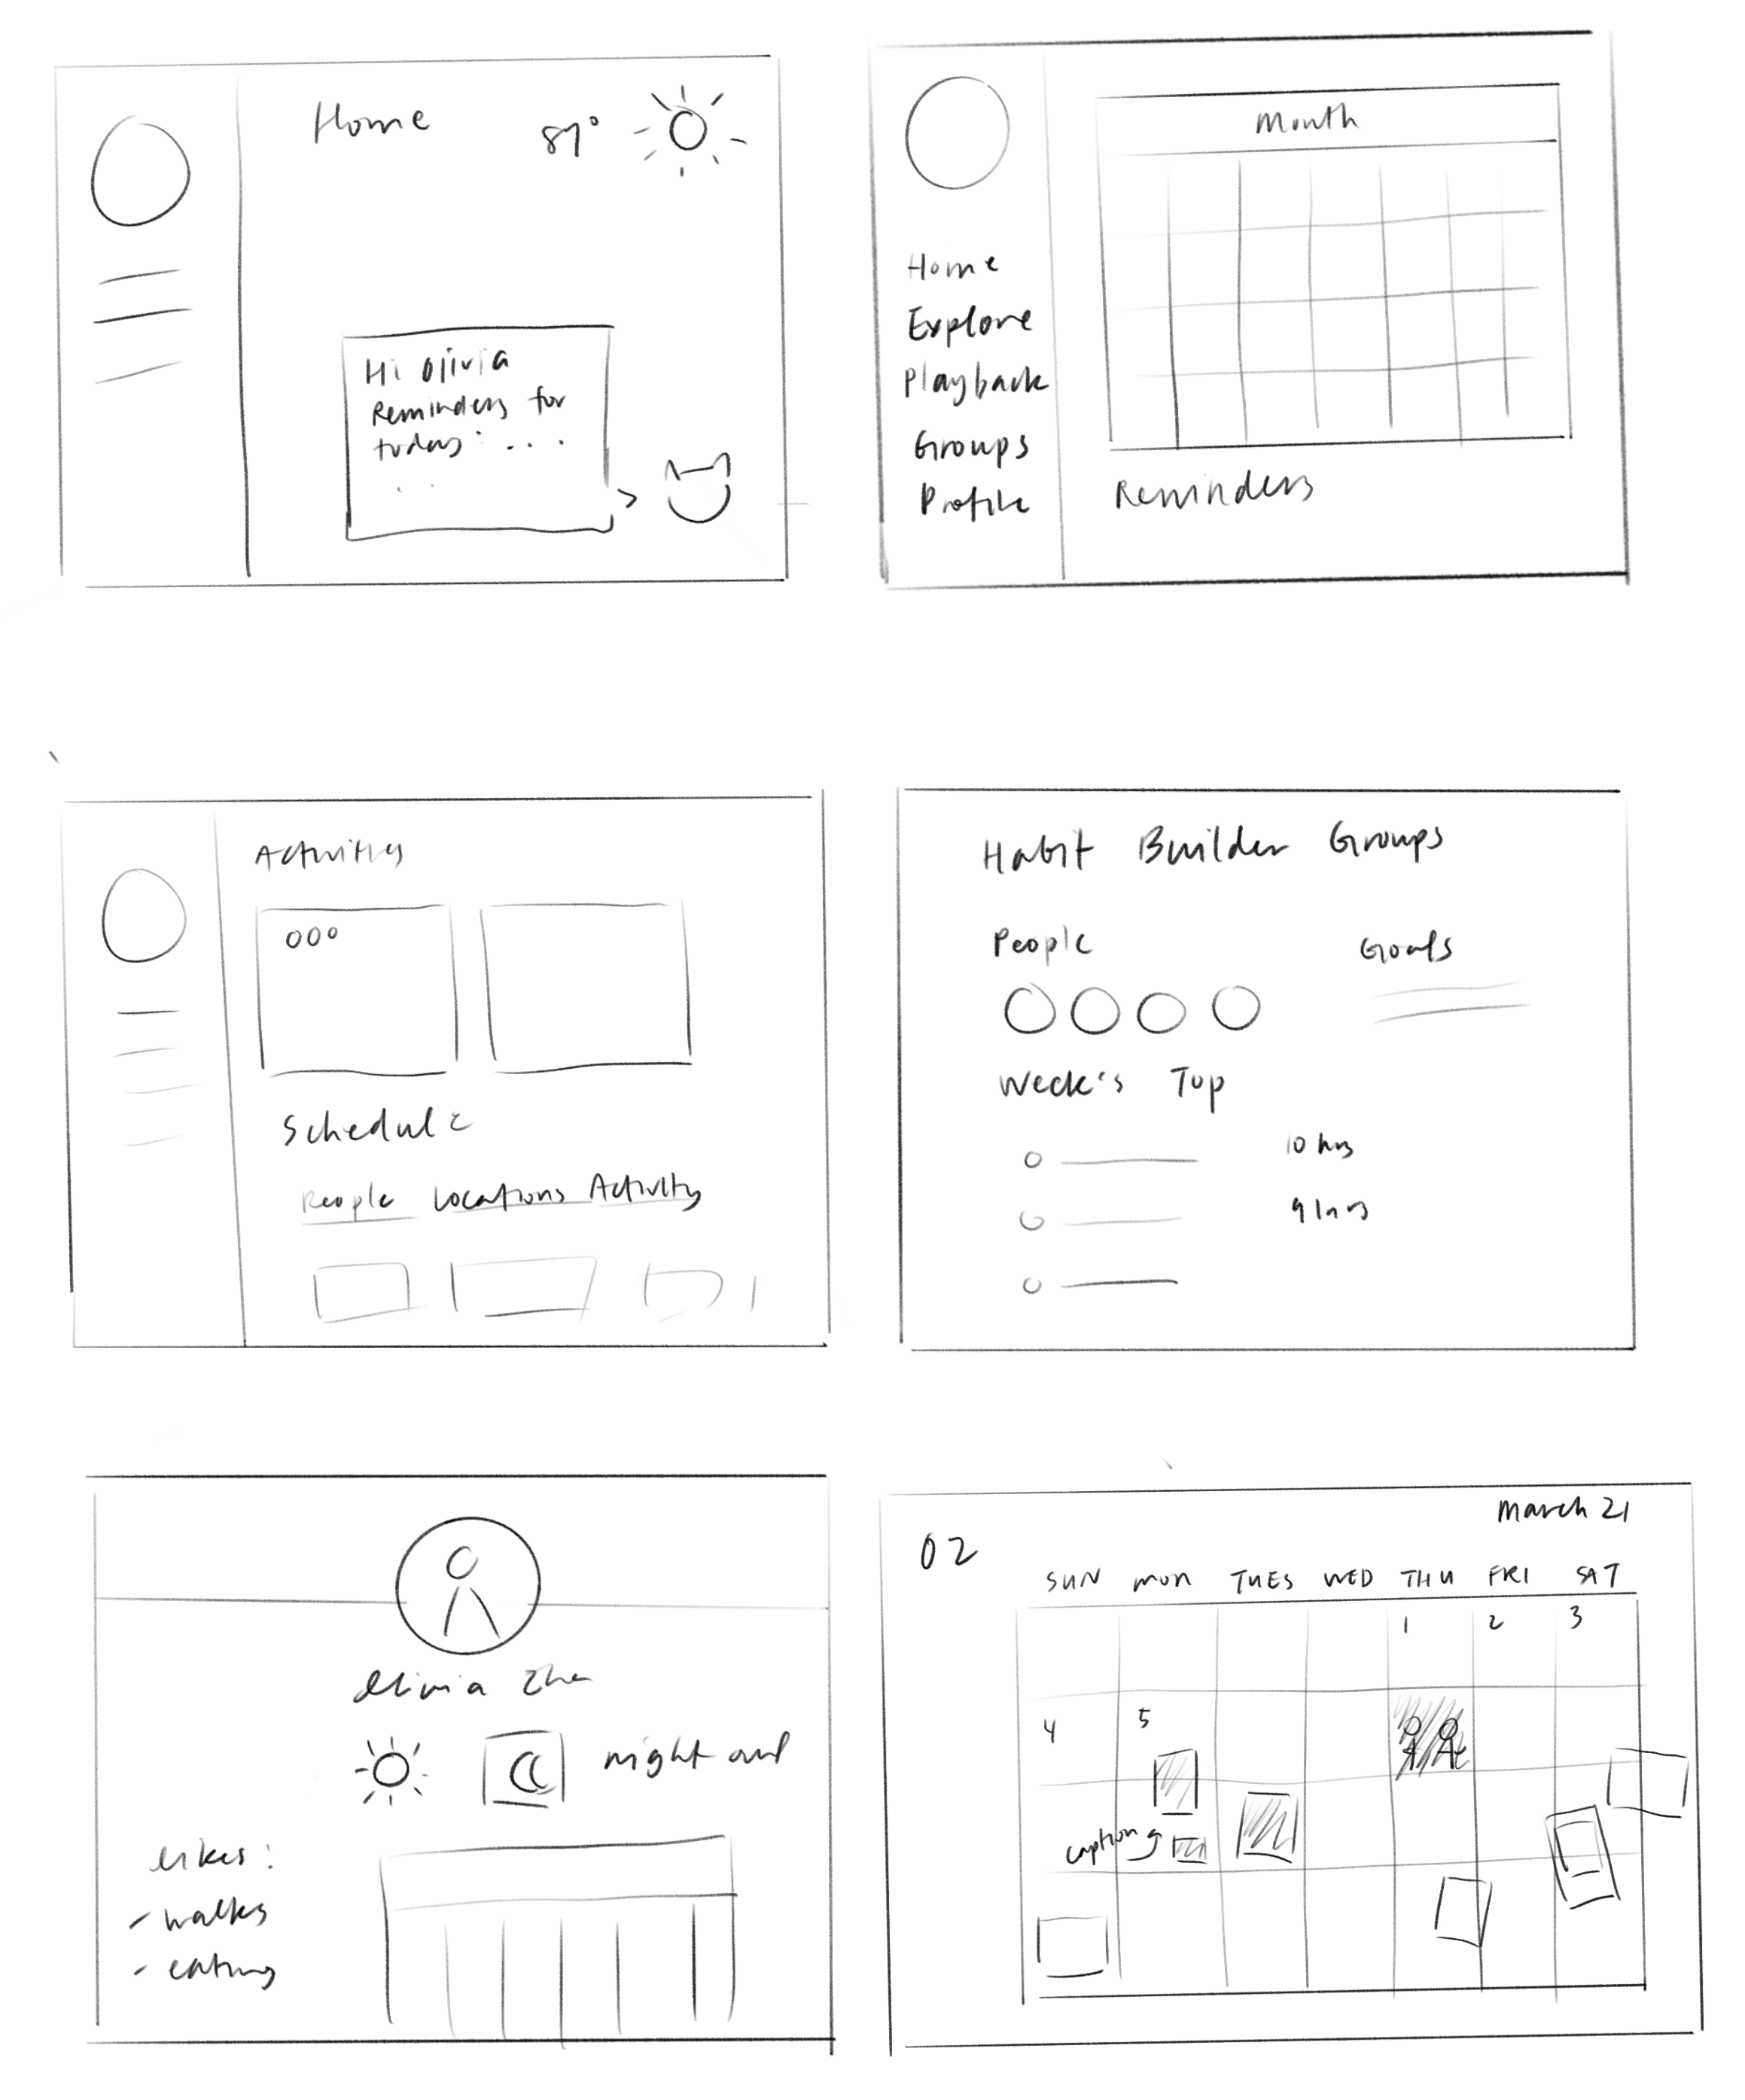 Home 87°
Hi Olivia
Reminders for
today: ....
Month
Home
Explore
Playback
Groups
Profile
Reminders
Activities
Schedule
People Locations Activity
Habit Builder Groups
People
Goals
Week's Top
10 hrs
9 hrs
Olivia
night owl
Likes:
- walks
- eating
March 21
02
SUN MON TUES WED THU FRI SAT
1 2 3
4 5
caption